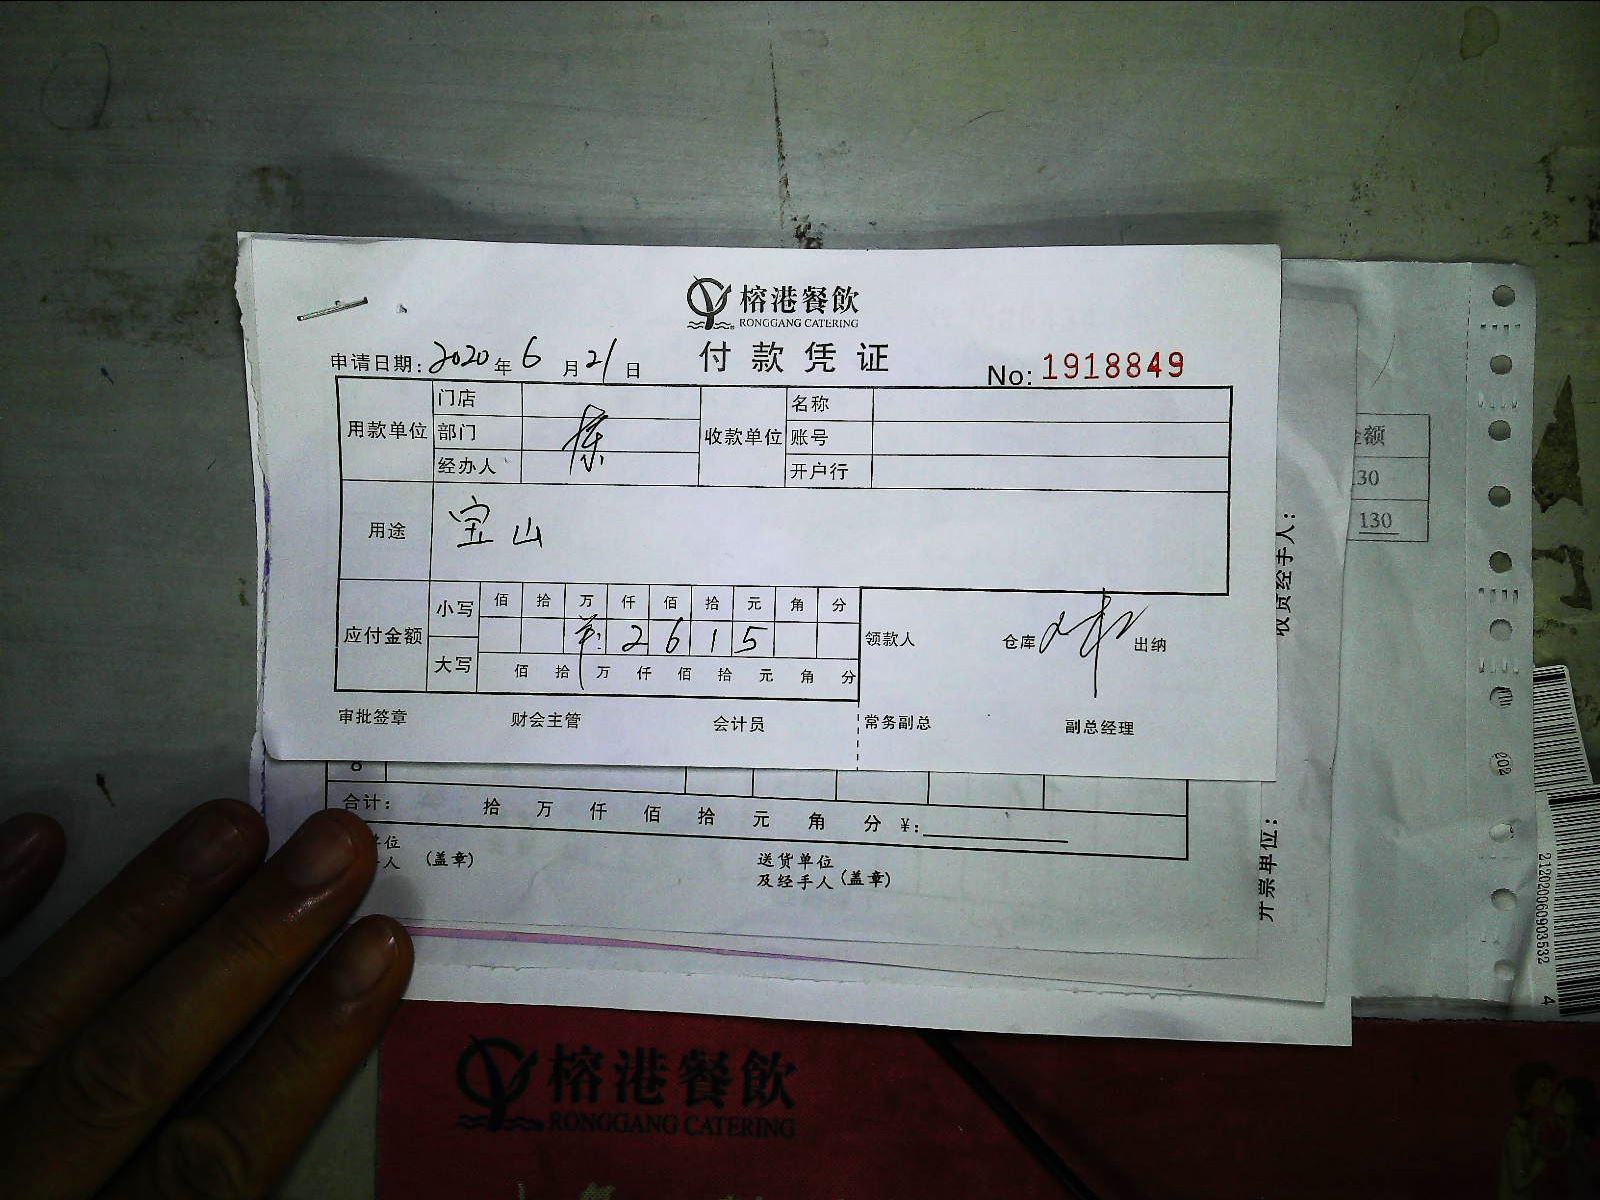 榕港餐飲
RONGGANG CATERING
付款凭证
申请日期: 2020 年 6 月 21 日
No: 1918849
用款单位 门店 部门 经办人
收款单位 名称 账号 开户行
用途 宝山
应付金额 小写 佰 拾 万 仟 佰 拾 元 角 分
¥: 2 6 1 5
大写 佰 拾 万 仟 佰 拾 元 角 分
领款人 仓库 出纳
审批签章 财会主管 会计员 常务副总 副总经理
8
合计: 拾 万 仟 佰 拾 元 角 分 ¥:
单位
手人 (盖章)
送货单位
及经手人 (盖章)
金额
130
130
收货经手人:
开票单位:
202
212020060903532 4
榕港餐飲
RONGGANG CATERING